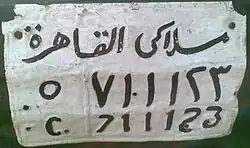 ملاكى القاهرة
٥ ٧١٠١١٢٣
C. 7111123